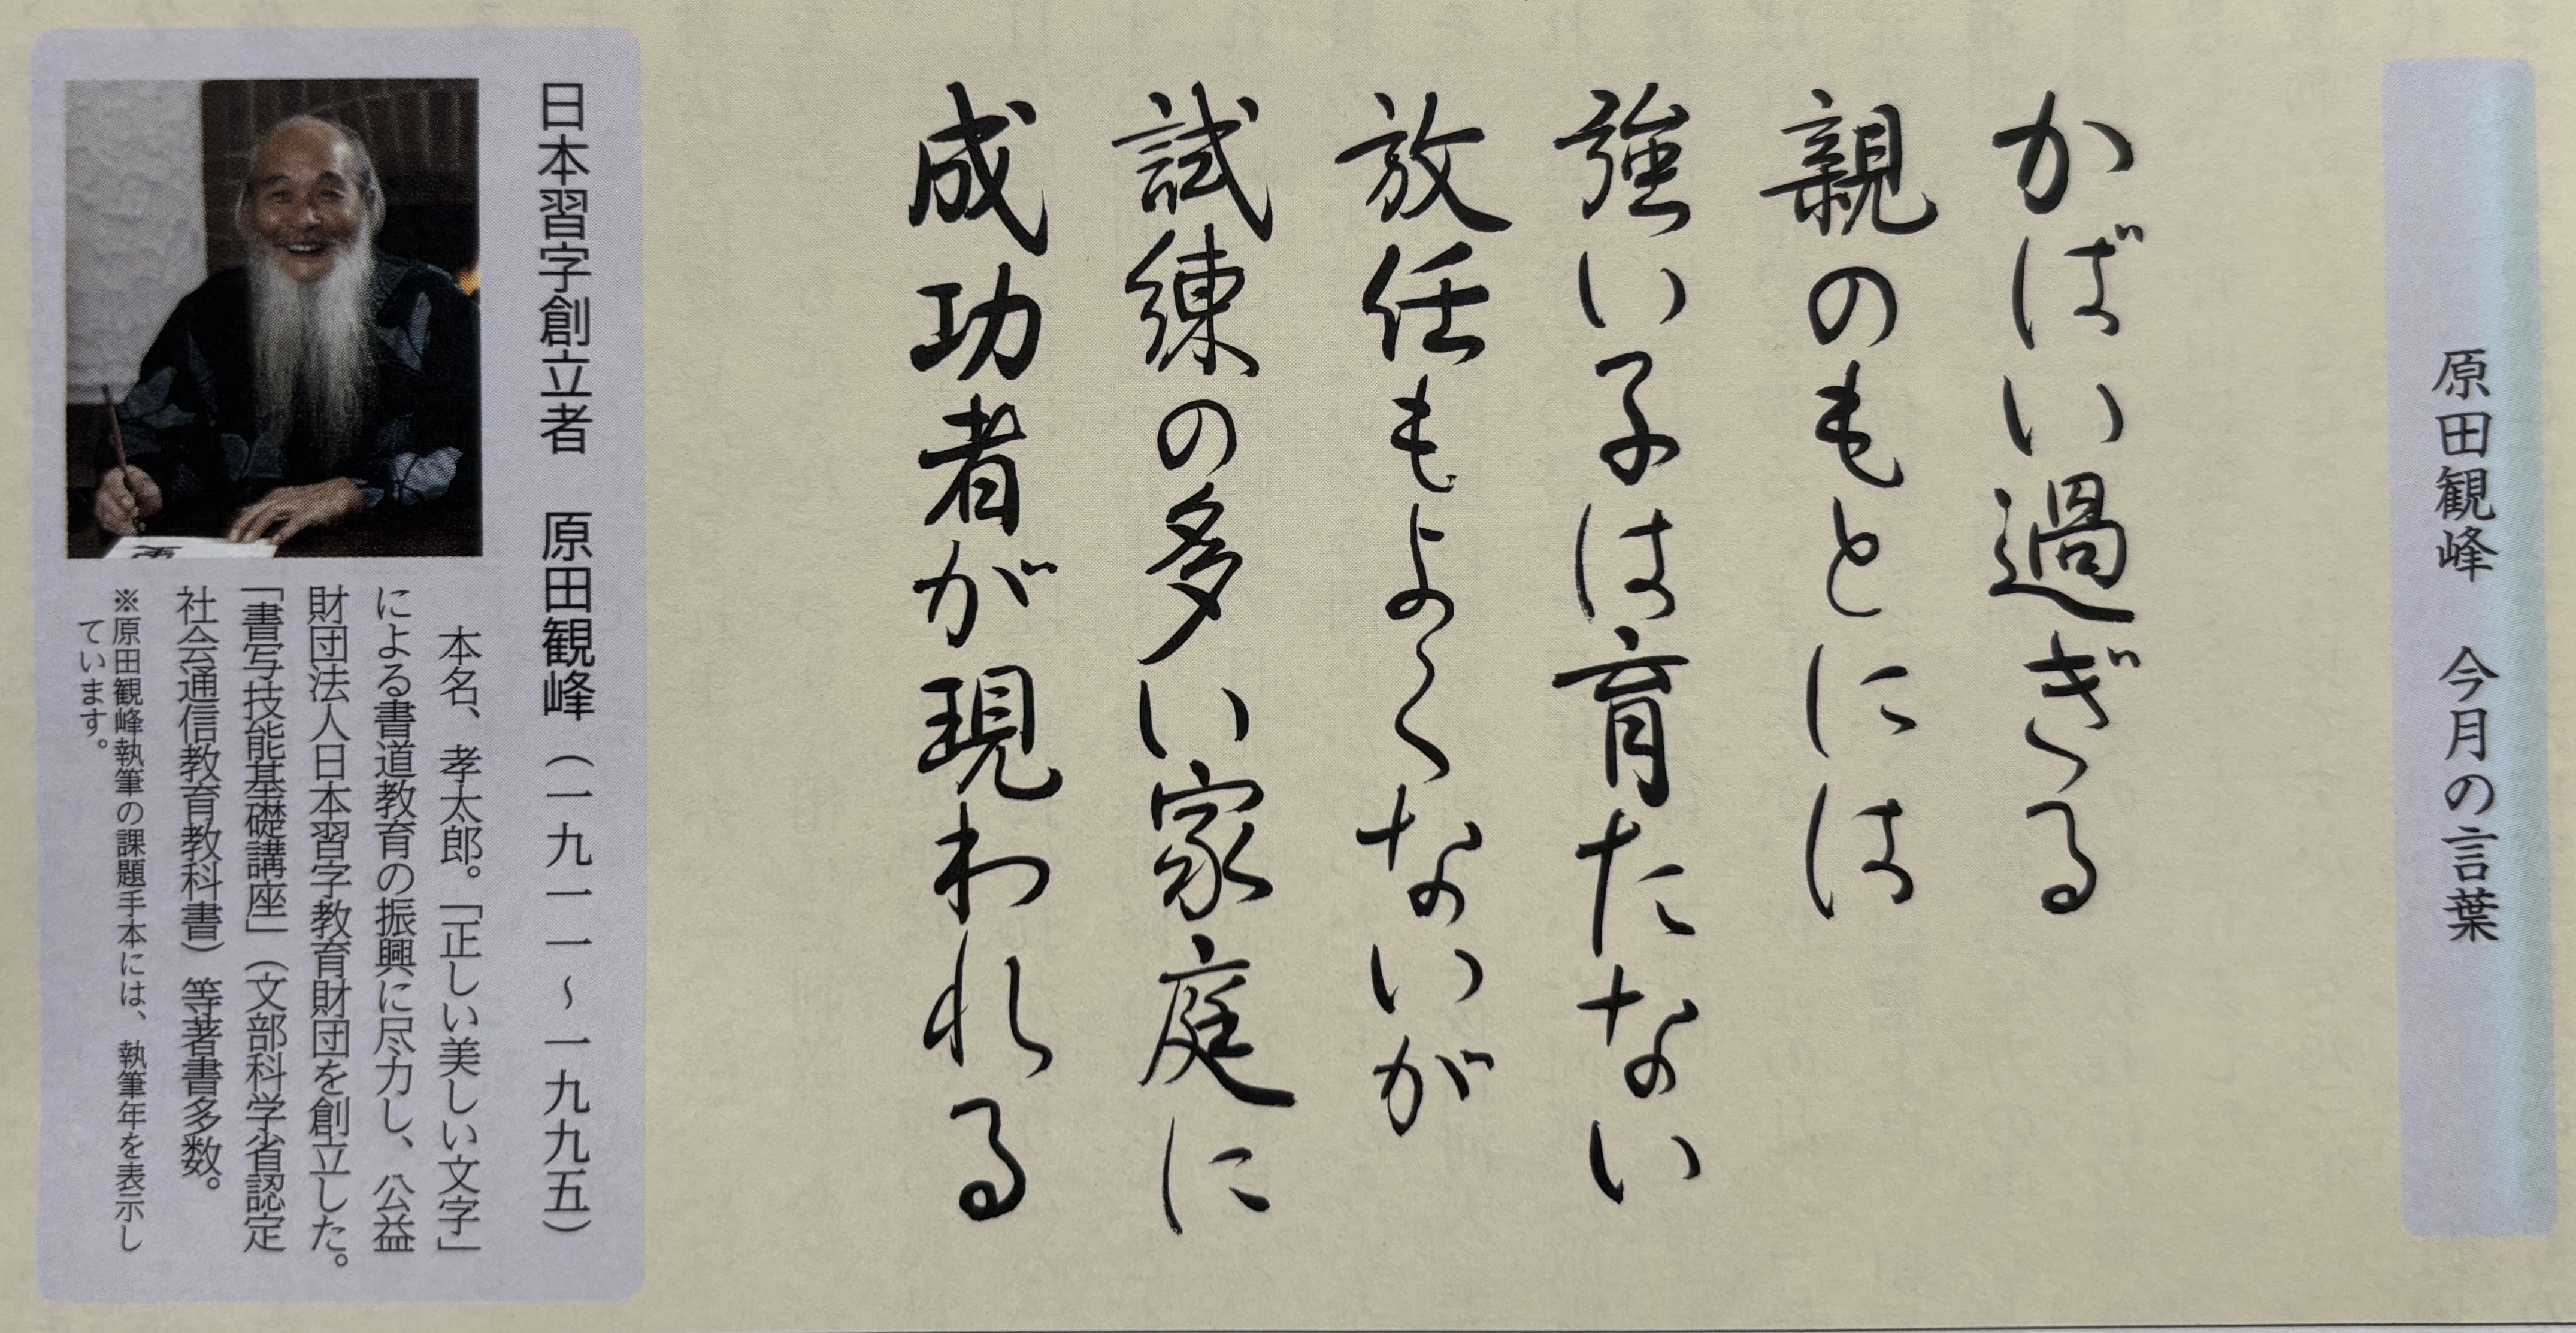 原田観峰 今月の言葉
かばい過ぎる
親のもとには
強い子は育たない
放任もよくないが
試練の多い家庭に
成功者が現われる
日本習字創立者 原田観峰(一九一一~一九九五)
本名、孝太郎。「正しい美しい文字」
による書道教育の振興に尽力し、公益
財団法人日本習字教育財団を創立した。
「書写技能基礎講座」(文部科学省認定
社会通信教育教科書)等著書多数。
※原田観峰執筆の課題手本には、執筆年を表示し
ています。